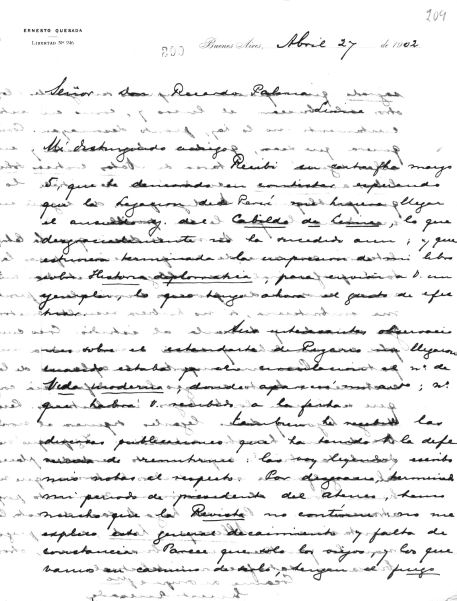 209
ERNESTO QUESADA
LIBERTAD Nº 946
Buenos Aires, Abril 27 de 1902
Señor Don Ricardo Palma
Lima
Mi distinguido amigo:
Recibí su carta fha mayo
que he demorado en contestar esperando
que la Legacion del Perú me hiciera llegar
el del Cabildo de Lima, lo que
desgraciadamente no ha sucedido aun; y que
estuviera terminada la impresion de mi libro
sobre Historia diplomatica, para enviar a V. un
ejemplar, lo que tengo ahora el gusto de efec
tuar.
Sus interesantes observacio
nes sobre el estandarte de Pizarro llegaron
cuando estaba ya en circulacion el nº de
Vida Moderna, donde apareció mi ; nº
que habrá V. recibido a la fecha.
Tambien he recibido las
diversas publicaciones que ha tenido la defe
rencia de remitirme: las voy leyendo
mis notas al respecto. Por desgracia, terminó
mi periodo de presidente del Ateneo, temo
mucho que la Revista no continúe: no me
explico este general decaimiento y falta de
constancia. Parece que solo los viejos, y los que
vamos en camino de serlo, tengan el fuego